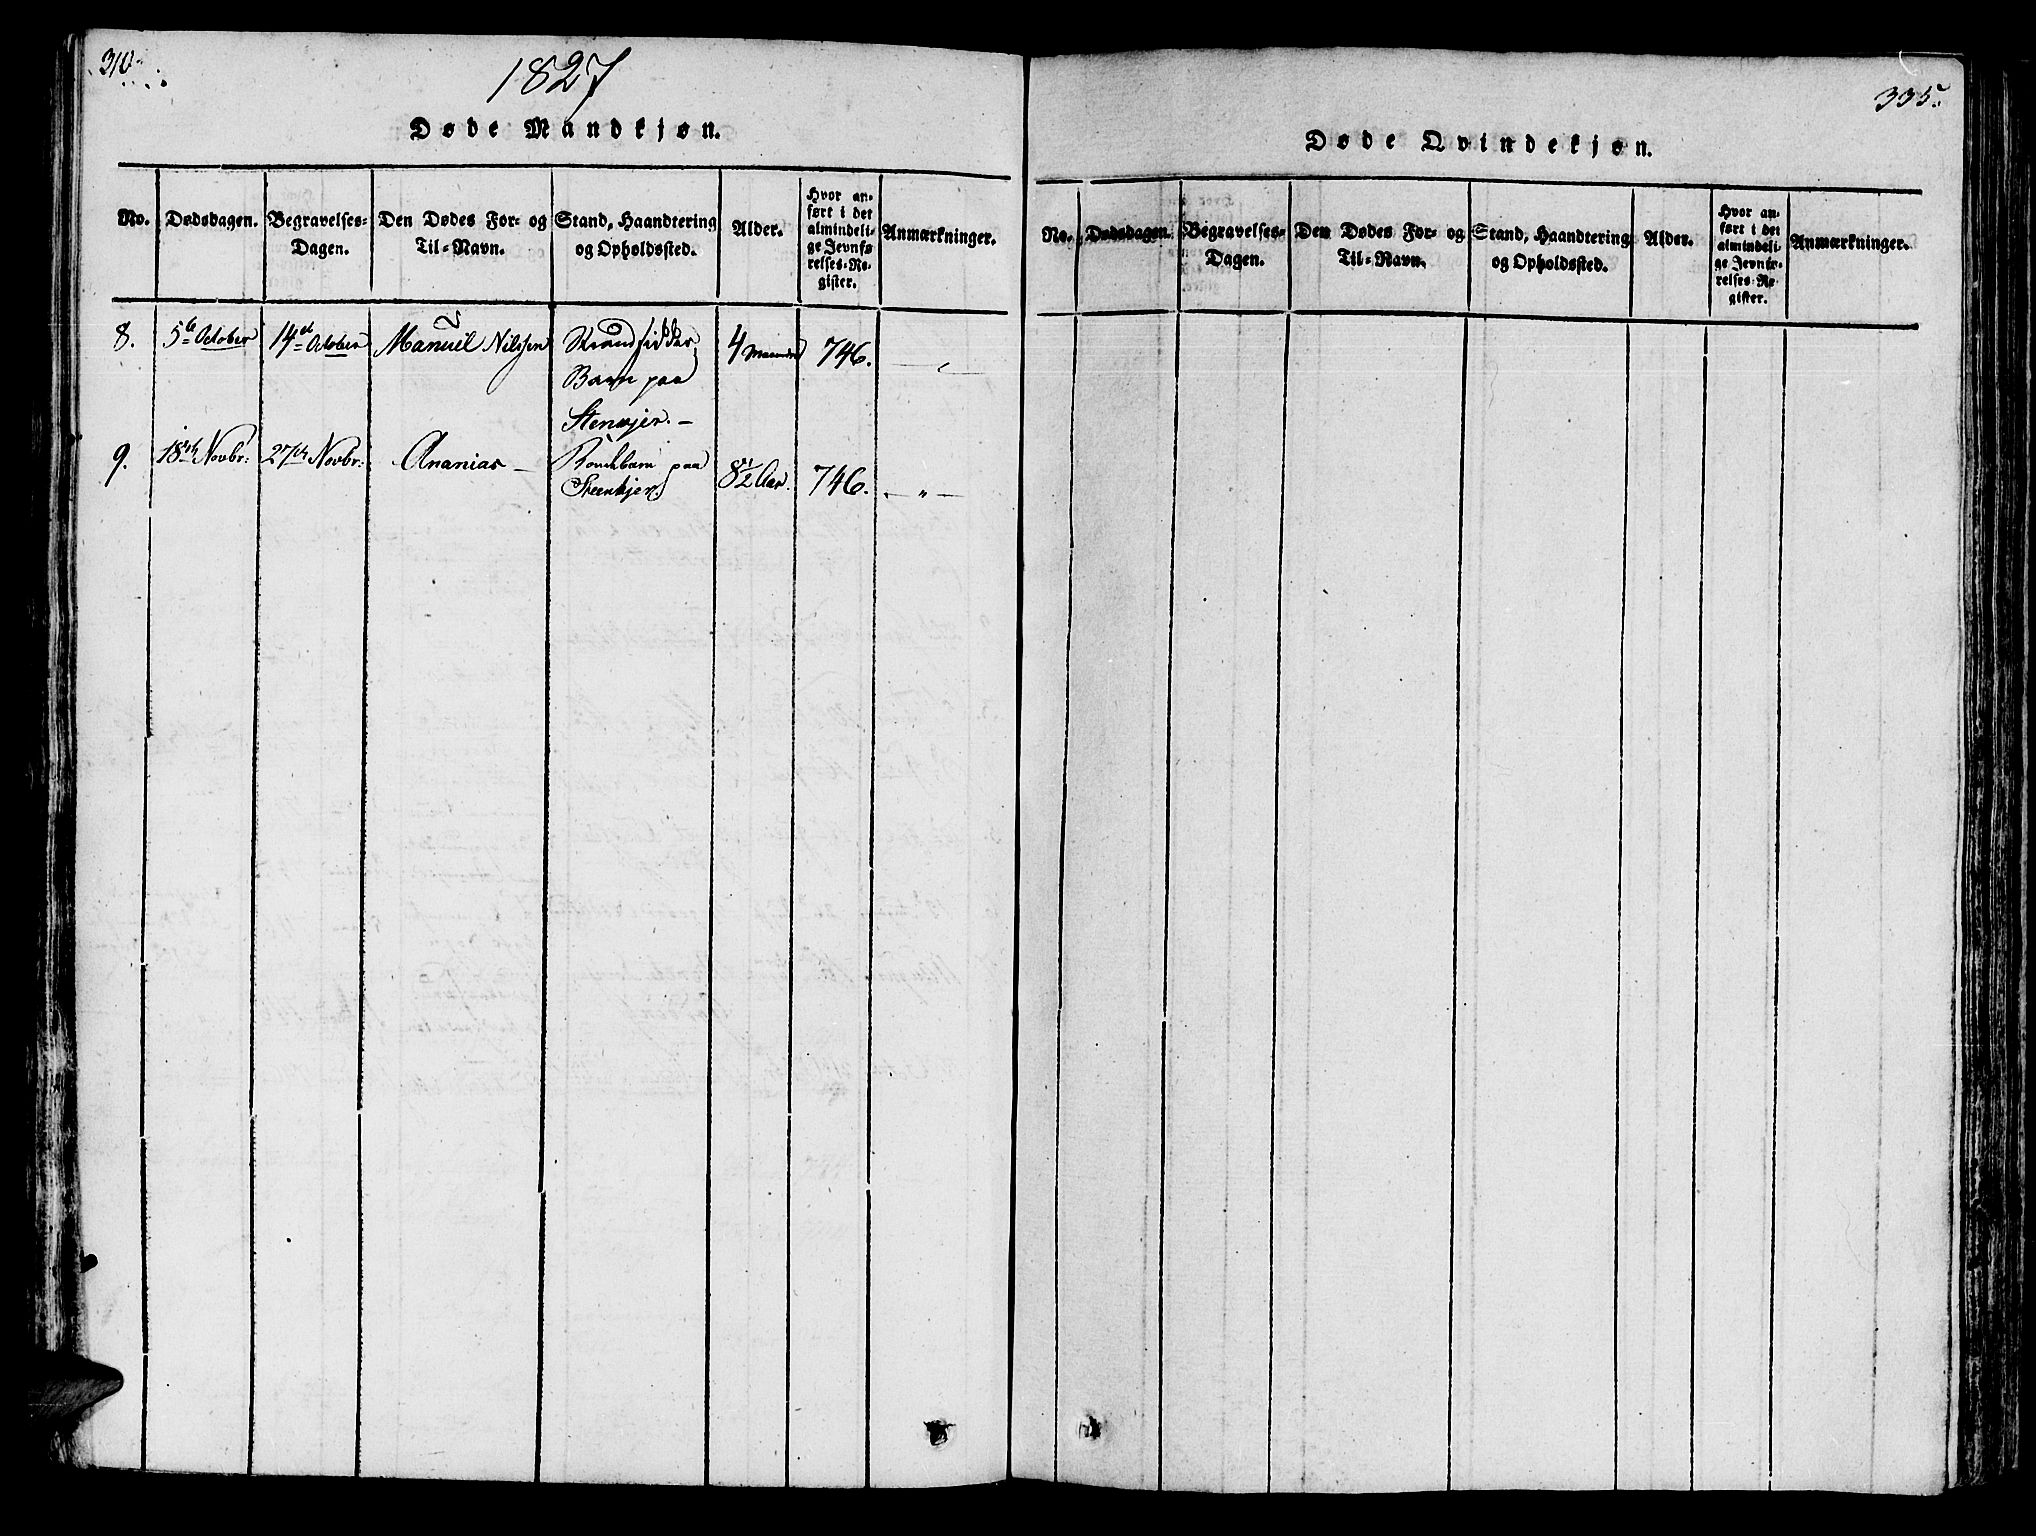 310
1827
Døde Mandkjøn.
No. Dødsdagen. Begravelses-Dagen. Den Dødes For- og Til-Navn. Stand, Haandtering og Opholdssted. Alder. Hvor anført i det almindelige Jevnførelses-Register. Anmærkninger.
8. 5te October 14de October Manuel Nilssen Strandsidder 4 Maaneder 746. — " —
Barn paa
Stenkjer. —
9. 18de Novbr: 27de Novbr: Ananias — Bondebarn paa 8 1/2 Aar. 746. — " —
Steenkjer.
335.
Døde Qvindekjøn.
No. Dødsdagen. Begravelses-Dagen. Den Dødes For- og Til-Navn. Stand, Haandtering og Opholdssted. Alder. Hvor anført i det almindelige Jevnførelses-Register. Anmærkninger.